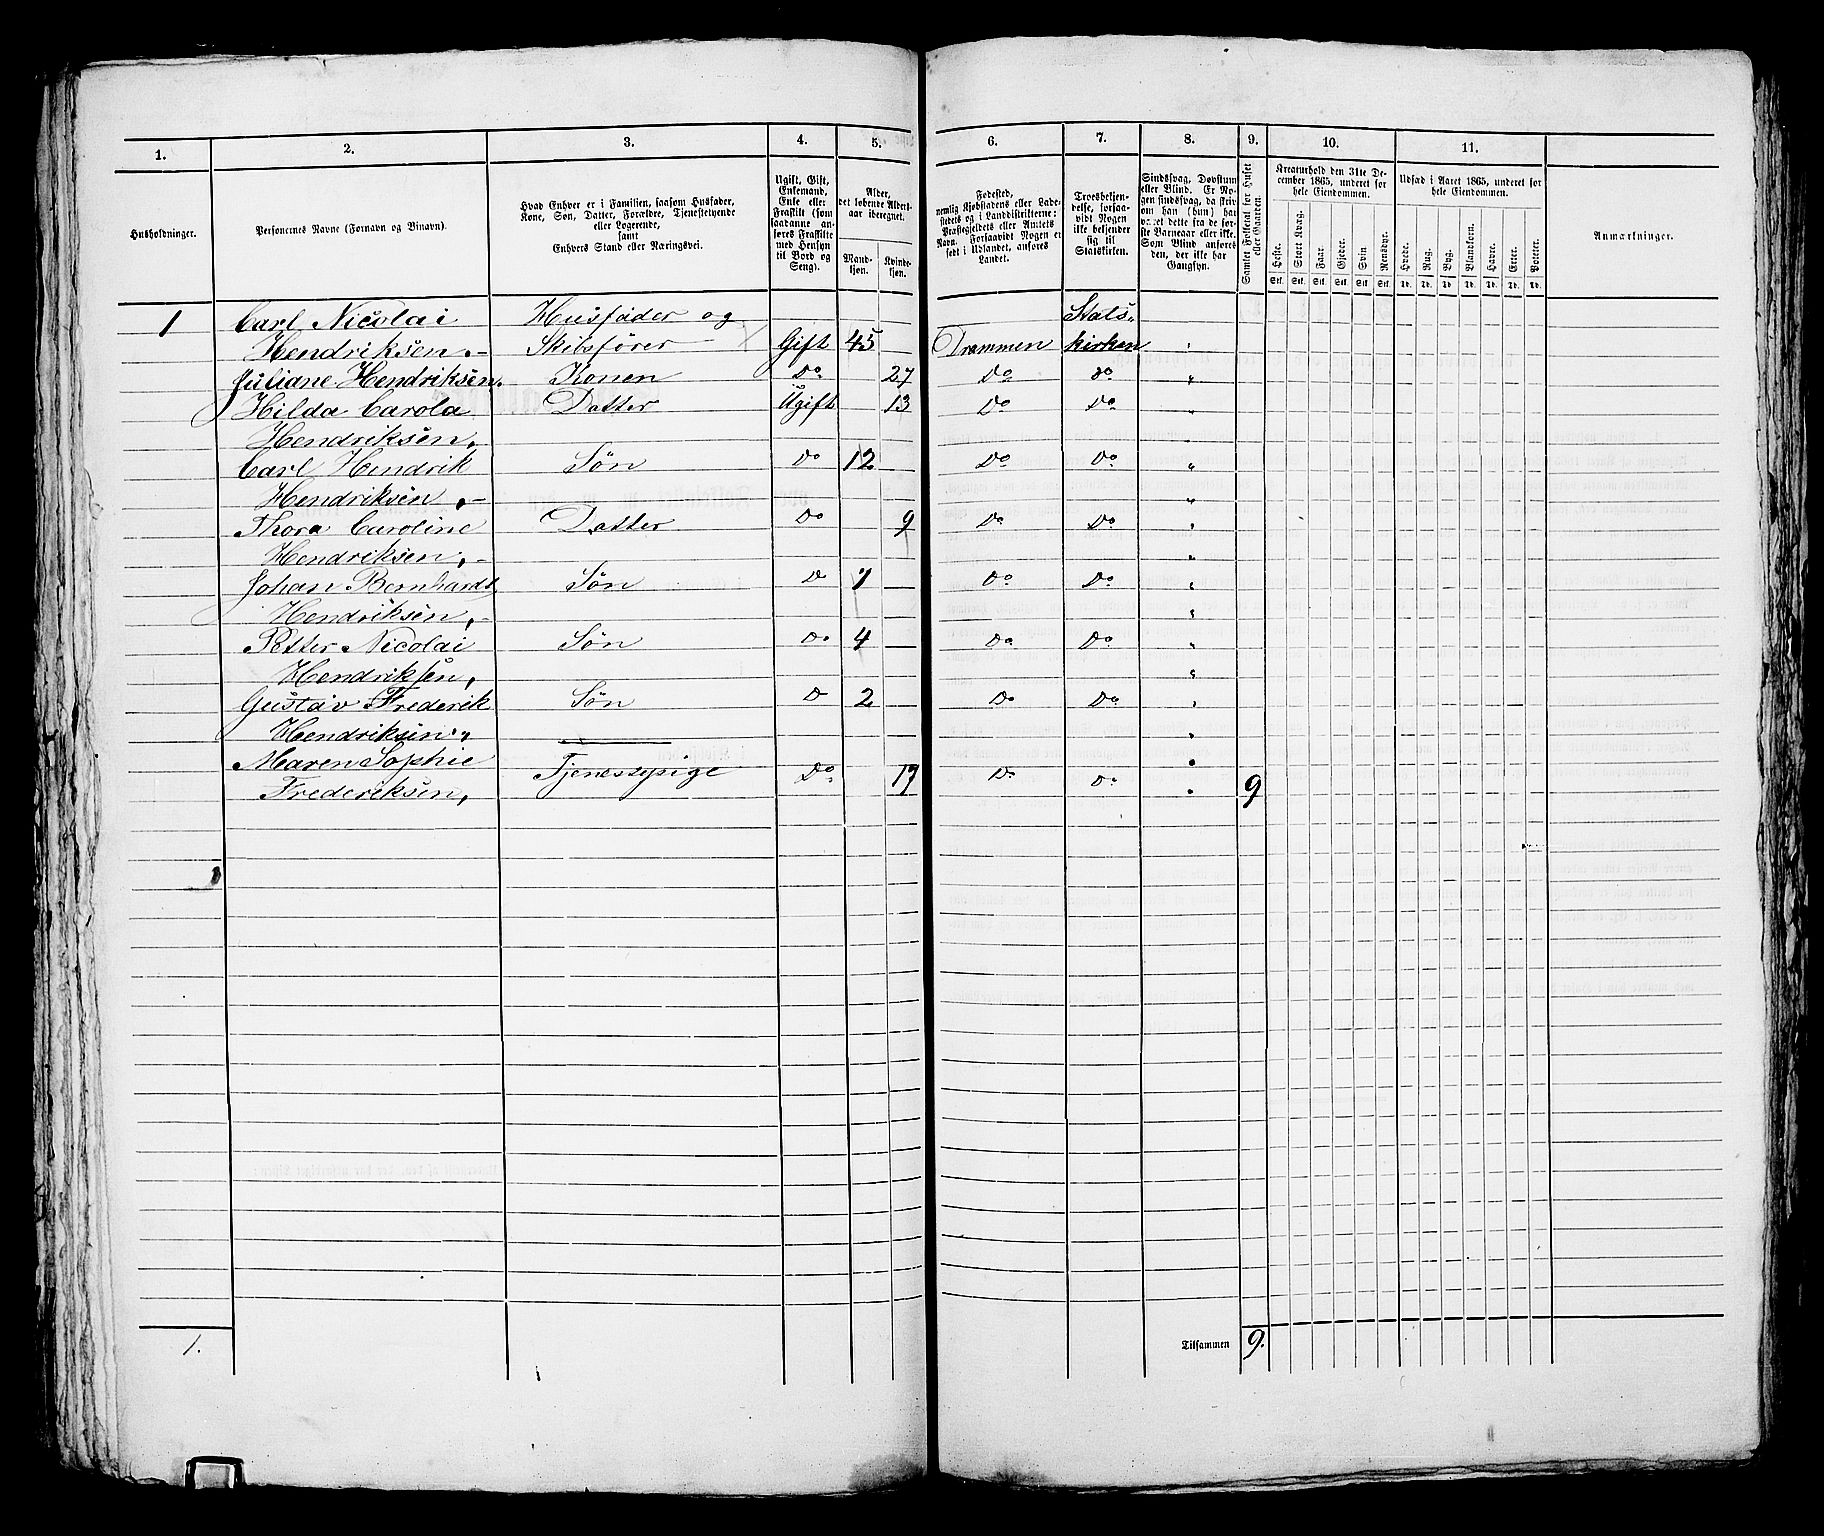 1. 2. 3. 4. 5. 6. 7. 8. 9. 10. 11.
Husholdninger.
Personernes Navne (Fornavn og Binavn).
Hvad Enhver er i Familien, saasom Husfader,
Kone, Søn, Datter, Forældre, Tjenestetyende
eller Logerende,
samt
Enhvers Stand eller Næringsvei.
Ugift, Gift,
Enkemand,
Enke eller
Fraskilt (som
saadanne an-
føres Fraskilte
med Hensyn
til Bord og
Seng).
Alder,
det løbende Alders-
aar iberegnet.
Mand-
kjøn.
Kvinde-
kjøn.
Fødested,
nemlig Kjøbstadens eller Lade-
stedets og i Landdistrikterne:
Præstegjeldets eller Annexets
Navn. Forsaavidt Nogen er
født i Udlandet, anføres
Landet.
Troesbekjen-
delse, forsaa-
vidt Nogen
ikke bekjender
sig til
Statskirken.
Sindssvag, Døvstum
eller Blind. Er No-
gen sindssvag, da skriv
om han (hun) har
været dette fra de før-
ste Barneaar eller ikke.
Som Blind anføres
den, der ikke har
Gangsyn.
Samlet Folketal for Huset
eller Gaarden.
Kreaturhold den 31te De-
cember 1865, underet for
hele Eiendommen.
Heste. Stort Kvæg. Faar. Gjeder. Svin Rensdyr.
Stk. Stk. Stk. Stk. Stk. Stk.
Udsæd i Aaret 1865, underet for
hele Eiendommen.
Hvede. Rug. Byg. Blandkorn. Havre. Erter. Poteter.
Td. Td. Td. Td. Td. Td. Td.
Anmærkninger.
1 Carl Nicolai Husfader og Stats„
Hendriksen.- Skibsfører Gift 45 Drammen kirken
Juliane Hendriksen. Konen Do 27 Do Do „
Hilda Carola Datter Ugift 13 Do Do „
Hendriksen,
Carl Hendrik Søn Do 12 Do Do „
Hendriksen,- „
Thora Caroline Datter Do 9 Do Do „
Hendriksen,- „
Johan Bernhardt Søn Do 7 Do Do „
Hendriksen,- „
Petter Nicolai Søn Do 4 Do Do „
Hendriksen, „
Gustav Frederik Søn Do 2 Do Do „
Hendriksen„ „
Maren Sophie
Frederiksen, Tjenestepige Do 19 Do Do 9
1. Tilsammen 9.